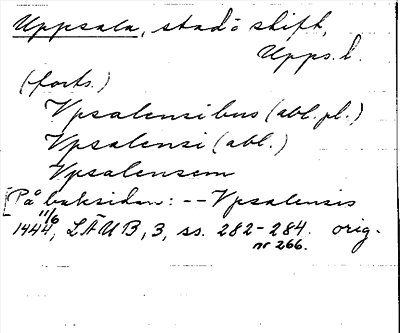 Uppsala, stad o skift,
Upps. l.
(forts.)
Vpsalensibus (abl. pl.)
Vpsalensi (abl.)
Vpsalensem
[På baksidan: -- Vpsalensis
11/6
1444, LÄUB, 3, ss. 282-284. orig.
nr 266.